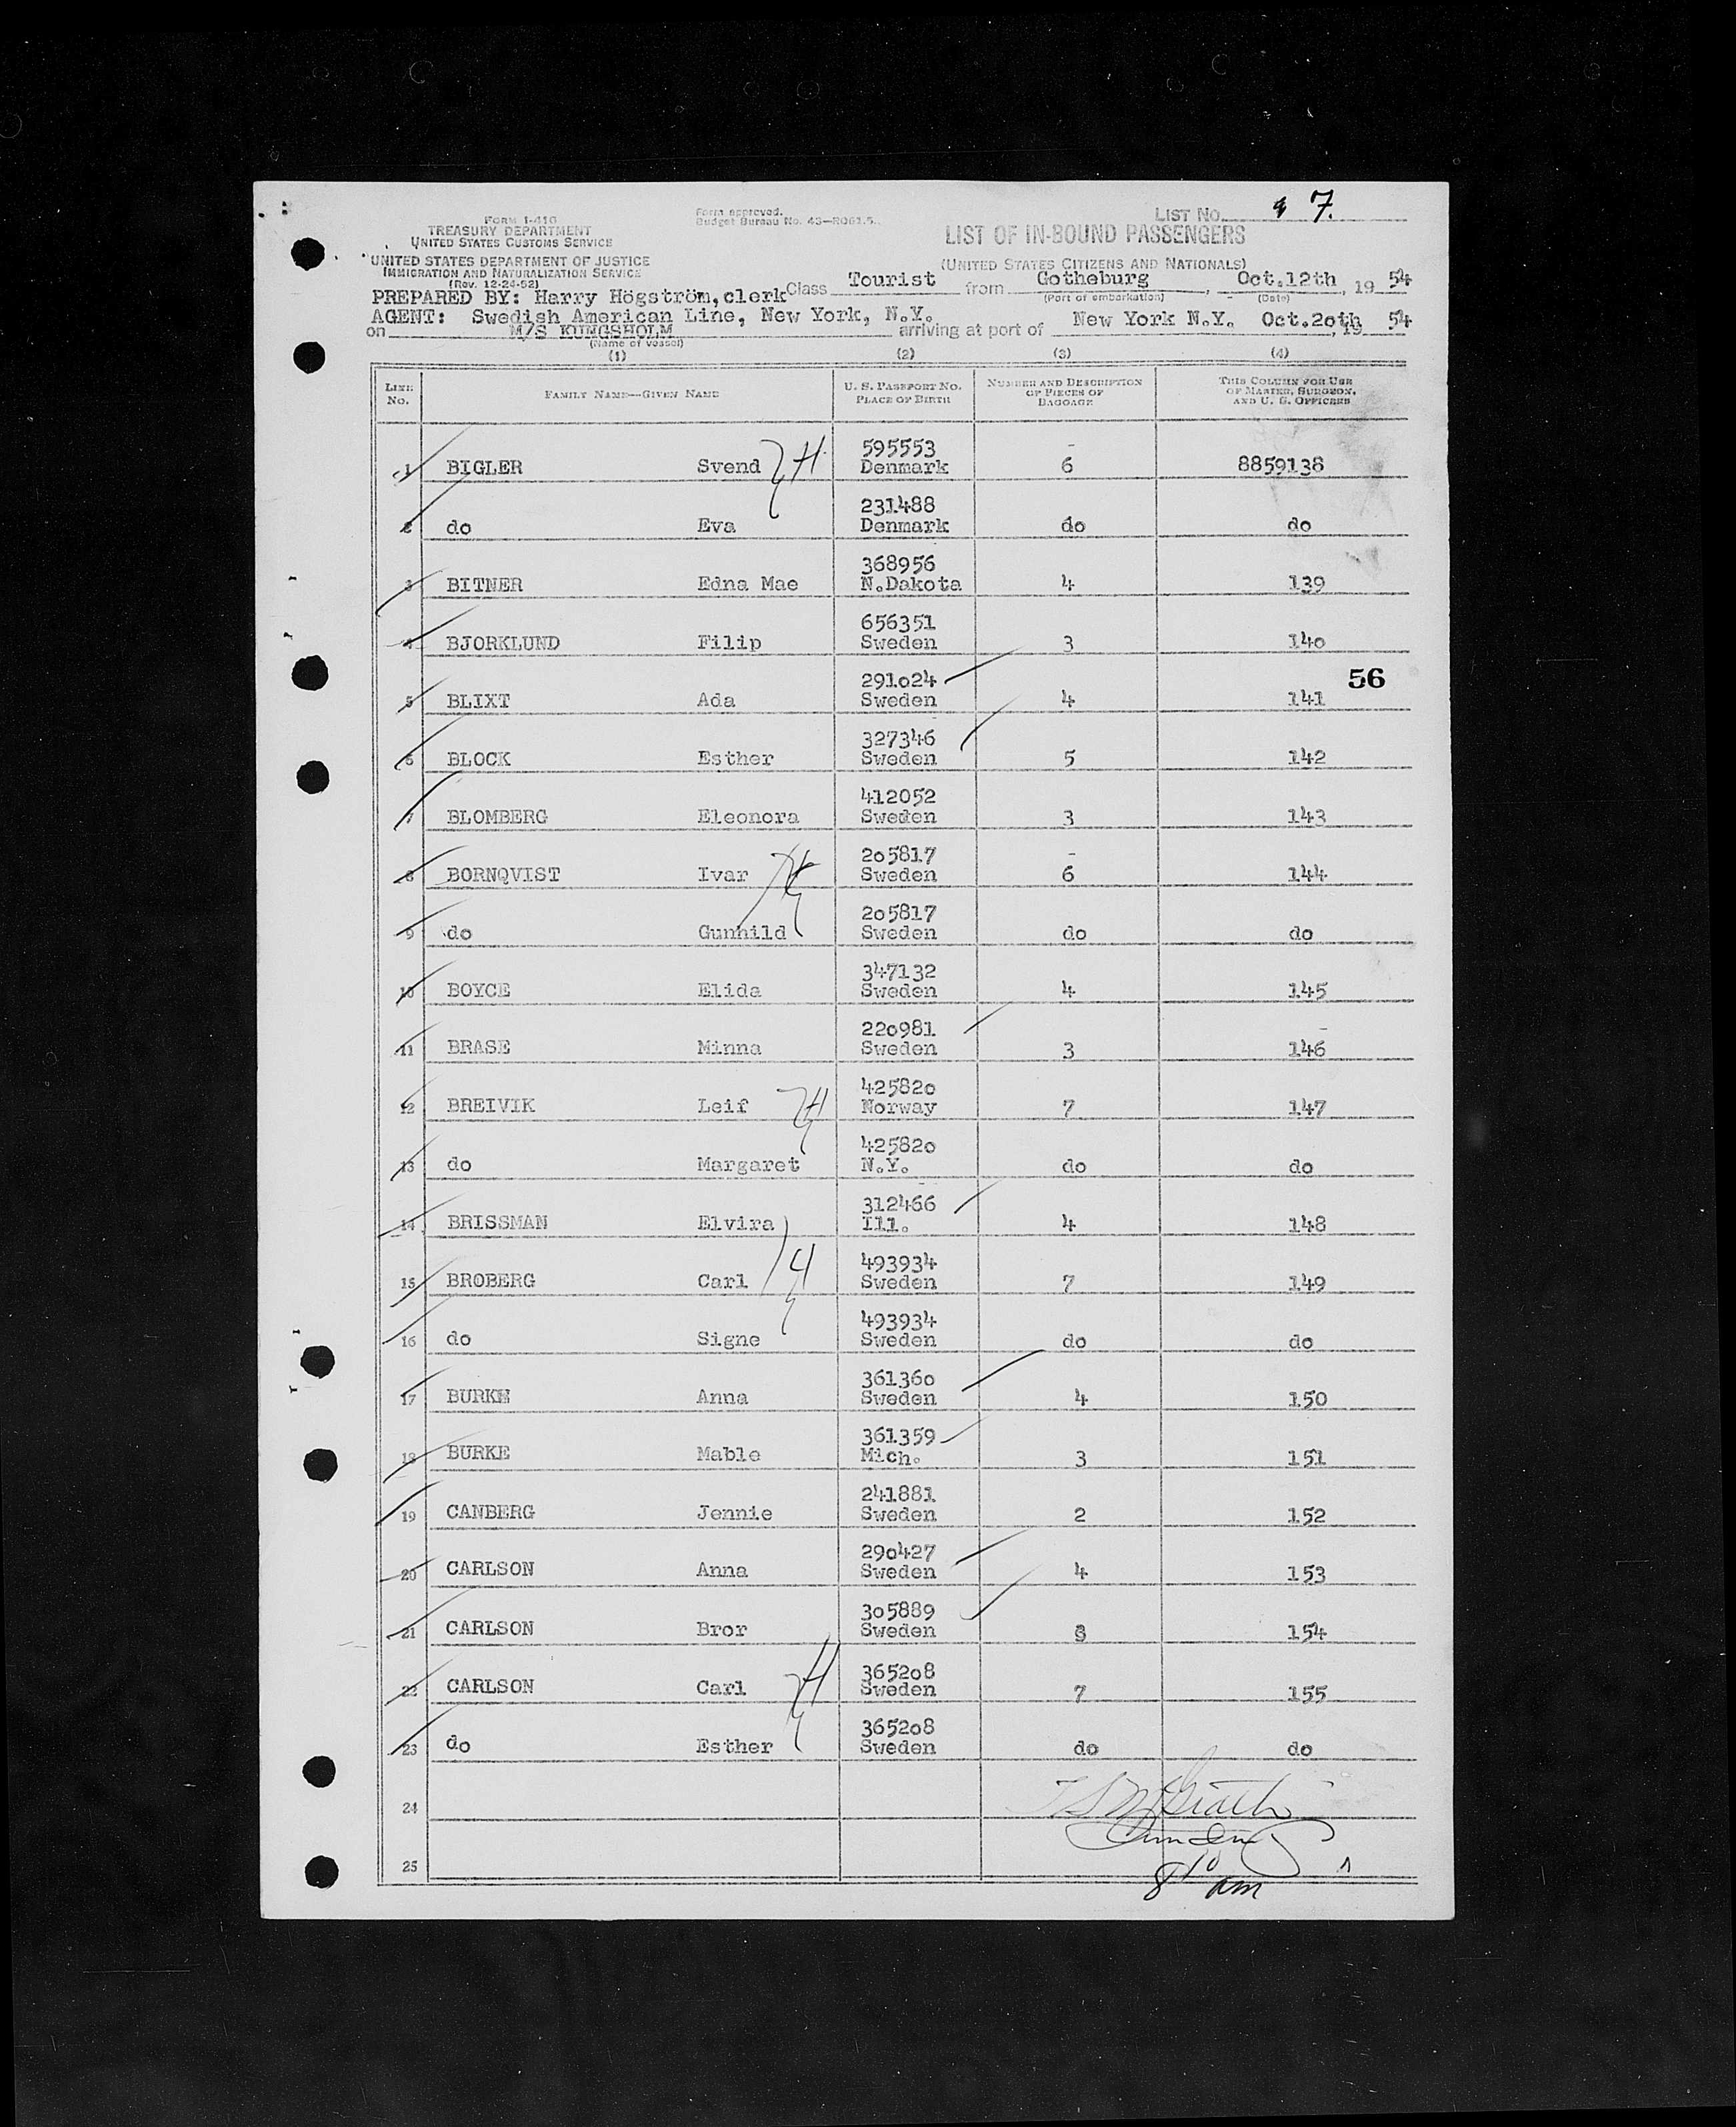 LIST No. 7.
FORM I-416
Form approved.
TREASURY DEPARTMENT
Budget Bureau No. 43—R061.5.
UNITED STATES CUSTOMS SERVICE
LIST OF IN-BOUND PASSENGERS
UNITED STATES DEPARTMENT OF JUSTICE
(UNITED STATES CITIZENS AND NATIONALS)
IMMIGRATION AND NATURALIZATION SERVICE
(Rev. 12-24-52)
Class Tourist from Gotheburg, Oct.12th, 19 54
(Port of embarkation) (Date)
PREPARED BY: Harry Högström, clerk
AGENT: Swedish American Line, New York, N.Y.
on M/S KUNGSHOLM arriving at port of New York N.Y. Oct.20th, 19 54
(Name of vessel)
(1) (2) (3) (4)
LINE No. FAMILY NAME—GIVEN NAME U. S. PASSPORT No. PLACE OF BIRTH NUMBER AND DESCRIPTION OF PIECES OF BAGGAGE THIS COLUMN FOR USE OF MASTER, SURGEON, AND U. S. OFFICERS
595553
1 BIGLER Svend Denmark 6 8859138
231488
2 do Eva Denmark do do
368956
3 BITNER Edna Mae N.Dakota 4 139
656351
4 BJORKLUND Filip Sweden 3 140
56
291024
5 BLIXT Ada Sweden 4 141
327346
6 BLOCK Esther Sweden 5 142
412052
7 BLOMBERG Eleonora Sweden 3 143
205817
8 BORNQVIST Ivar Sweden 6 144
205817
9 do Gunhild Sweden do do
347132
10 BOYCE Elida Sweden 4 145
220981
11 BRASE Minna Sweden 3 146
425820
12 BREIVIK Leif Norway 7 147
425820
13 do Margaret N.Y. do do
312466
14 BRISSMAN Elvira Ill. 4 148
493934
15 BROBERG Carl Sweden 7 149
493934
16 do Signe Sweden do do
361360
17 BURKE Anna Sweden 4 150
361359
18 BURKE Mable Mich. 3 151
241881
19 CANBERG Jennie Sweden 2 152
290427
20 CARLSON Anna Sweden 4 153
305889
21 CARLSON Bror Sweden 8 154
365208
22 CARLSON Carl Sweden 7 155
365208
23 do Esther Sweden do do
24
25
8 10 am